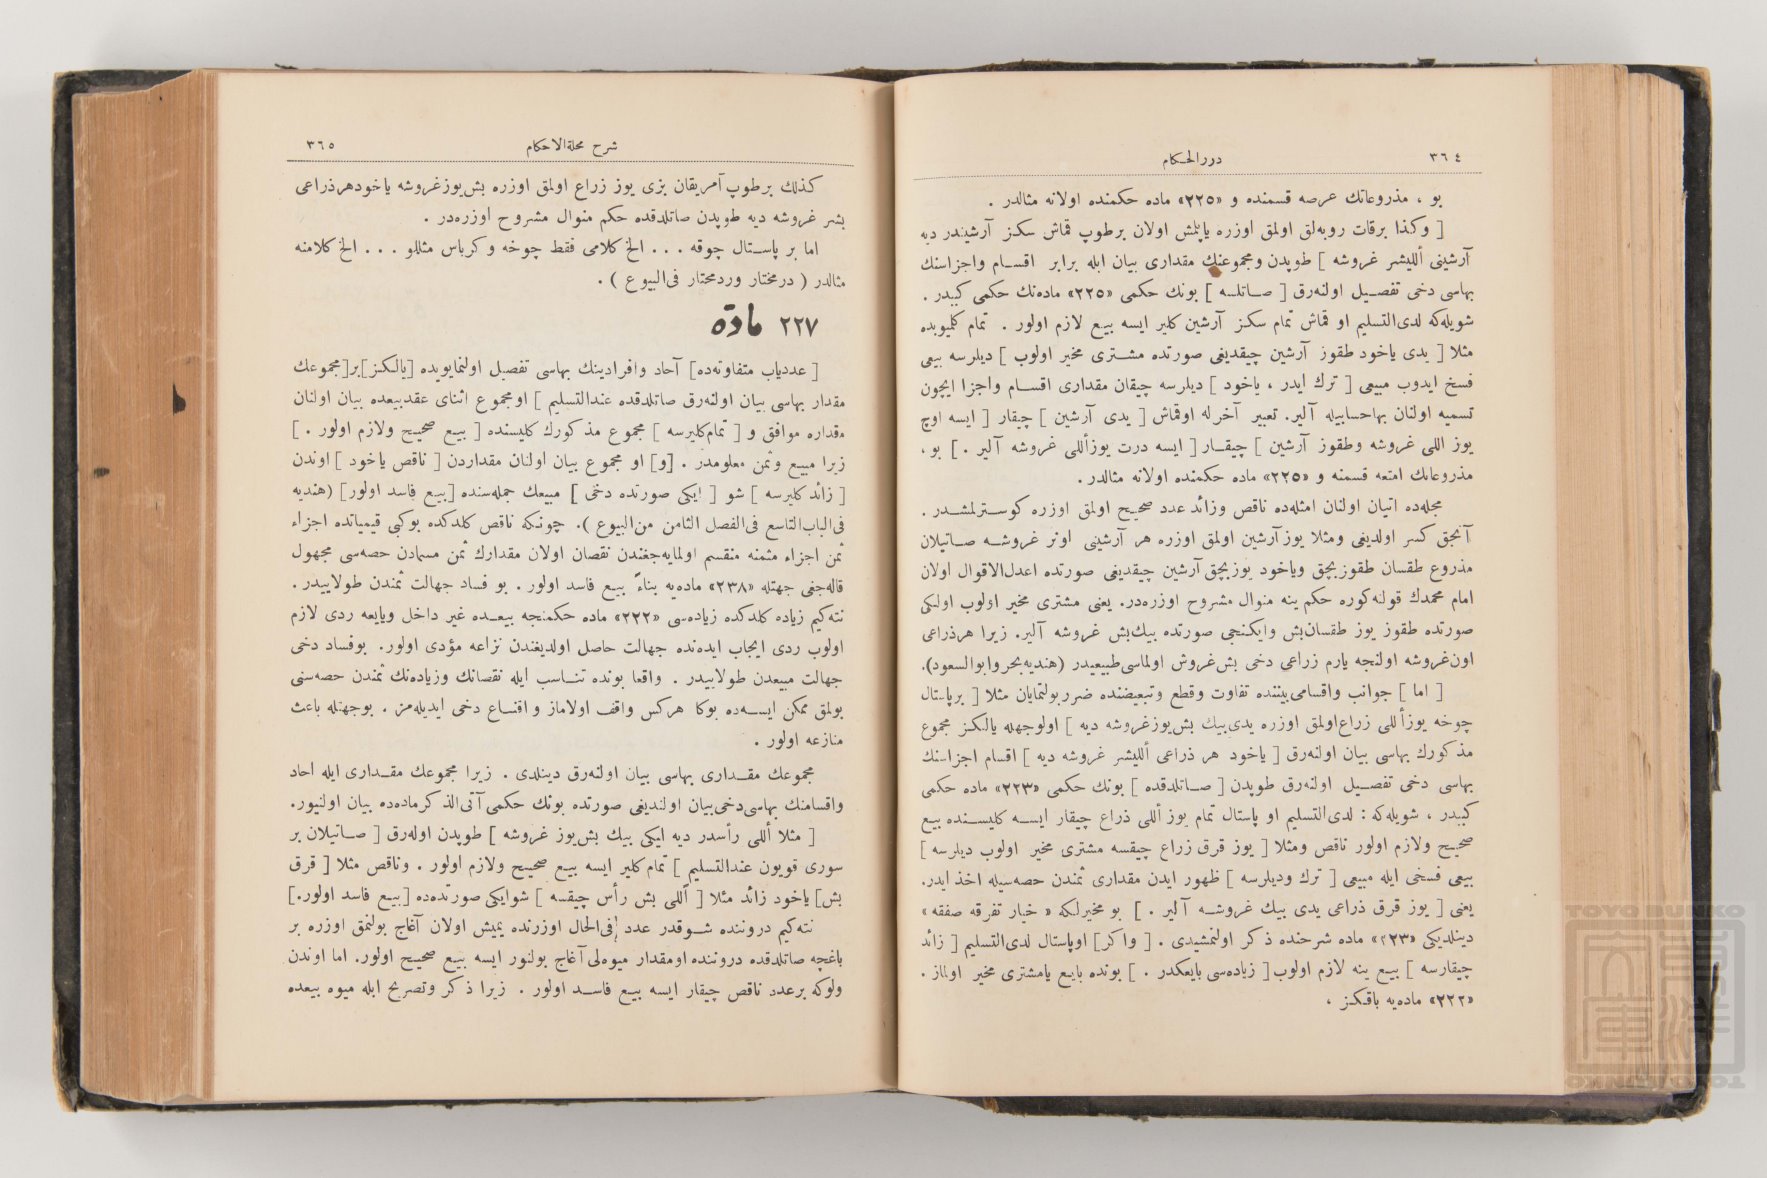 ٣٦٤
دررالحكام
بو ، مذروعاتك عرصه قسمنده و «٢٢٥» ماده حكمنده اولانه مثالدر .
[ وكذا برقات روبه‌لق اولمق اوزره ياپلمش اولان برطوپ قماش سكز آرشيندر ديه
آرشينى ألليشر غروشه ] طوپدن ومجموعنك مقدارى بيان ايله برابر اقسام واجزاسنك
بهاسى دخى تفصيل اولنه‌رق [ صاتلسه ] بونك حكمى «٢٢٥» ماده‌نك حكمى كبيدر .
شويله‌كه لدى‌التسليم او قماش تمام سكز آرشين كلير ايسه بيع لازم اولور . تمام كلميوبده
مثلا [ يدى ياخود طقوز آرشين چيقديغى صورتده مشترى مخير اولوب ] ديلرسه بيعى
فسخ ايدوب مبيعى [ ترك ايدر ، ياخود ] ديلرسه چيقان مقدارى اقسام واجزا ايچون
تسميه اولنان بهاحسابيله آلير. تعبير آخرله اوقماش [ يدى آرشين ] چيقار [ ايسه اوچ
يوز اللى غروشه وطقوز آرشين ] چيقار [ ايسه درت يوزأللى غروشه آلير . ] بو ،
مذروعاتك امتعه قسمنه و «٢٢٥» ماده حكمنده اولانه مثالدر .
مجله‌ده اتيان اولنان امثله‌ده ناقص وزائد عدد صحيح اولمق اوزره كوسترلمشدر .
آنجق كسر اولديغى ومثلا يوز آرشين اولمق اوزره هر آرشينى اونر غروشه صاتيلان
مذروع طقسان طقوزبچق وياخود يوزبچق آرشين چيقديغى صورتده اعدل‌الاقوال اولان
امام محمدك قولنه‌كوره حكم ينه منوال مشروح اوزره‌در. يعنى مشترى مخير اولوب اولكى
صورتده طقوز يوز طقسان‌بش وايكنجى صورتده بيك‌بش غروشه آلير. زيرا هرذراعى
اون‌غروشه اولنجه يارم زراعى دخى بش‌غروش اولماسى‌طبيعيدر (هنديه‌بحروابوالسعود).
[ اما ] جوانب واقسامى‌بيننده تفاوت وقطع وتبعيضنده ضرربولنمايان مثلا [ برپاستال
چوخه يوزأللى زراع‌اولمق اوزره يدى‌بيك بش‌يوزغروشه ديه ] اولوجهله يالكز مجموع
مذكورك بهاسى بيان اولنه‌رق [ ياخود هر ذراعى ألليشر غروشه ديه ] اقسام اجزاسنك
بهاسى دخى تفصيل اولنه‌رق طوپدن [ صاتلدقده ] بونك حكمى «٢٢٣» ماده حكمى
كبيدر ، شويله‌كه : لدى‌التسليم او پاستال تمام يوز أللى ذراع چيقار ايسه كليسنده بيع
صحيح ولازم اولور ناقص ومثلا [ يوز قرق زراع چيقسه مشترى مخير اولوب ديلرسه ]
بيعى فسخى ايله مبيعى [ ترك وديلرسه ] ظهور ايدن مقدارى ثمندن حصه‌سيله اخذ ايدر.
يعنى [ يوز قرق ذراعى يدى بيك غروشه آلير . ] بو مخيرلكه « خيار تفرقه صفقه »
دينلديكى «٢٢٣» ماده شرحنده ذكر اولنمشيدى . [ واكر] اوپاستال لدى‌التسليم [ زائد
چيقارسه ] بيع ينه لازم اولوب[ زياده‌سى بايعكدر . ] بونده بايع يامشترى مخير اولماز .
«٢٢٢» ماده‌يه باقكز ،
شرح مجلةالاحكام
٣٦٥
كذلك برطوپ آمريقان بزى يوز زراع اولمق اوزره بش‌يوزغروشه ياخودهرذراعى
بشر غروشه ديه طوپدن صاتلدقده حكم منوال مشروح اوزره‌در .
اما بر پاستال چوقه . . . الخ كلامى فقط چوخه وكرباس مثللو . . . الخ كلامنه
مثالدر ( درمختار وردمحتار فى‌البيوع ) .
٢٢٧ ماده
[ عددياب متفاوته‌ده] آحاد وافرادينك بهاسى تفصيل اولنمايوبده [يالكز]بر[مجموعك
مقدار بهاسى بيان اولنه‌رق صاتلدقده عندالتسليم ] اومجموع اثناى عقدبيعده بيان اولنان
مقداره موافق و [ تمام‌كليرسه ] مجموع مذكورك كليسنده [ بيع صحيح ولازم اولور . ]
زيرا مبيع وثمن معلومدر . [و] او مجموع بيان اولنان مقداردن [ ناقص ياخود ] اوندن
[ زائد كليرسه ] شو [ ايكى صورتده دخى ] مبيعك جمله‌سنده [بيع فاسد اولور] (هنديه
فى‌الباب‌التاسع فى‌الفصل الثامن من‌البيوع ). چونكه ناقص كلدكده بوكبى قيمياتده اجزاء
ثمن اجزاء مثمنه منقسم اولمايه‌جغندن نقصان اولان مقدارك ثمن مسمادن حصه‌سى مجهول
قاله‌جغى جهتله «٢٣٨» ماده‌يه بناءً بيع فاسد اولور . بو فساد جهالت ثمندن طولاييدر .
نته‌كيم زياده كلدكده زياده‌سى «٢٢٢» ماده حكمنجه بيعده غير داخل وبايعه ردى لازم
اولوب ردى ايجاب ايده‌نده جهالت حاصل اولديغندن نزاعه مؤدى اولور. بوفساد دخى
جهالت مبيعدن طولاييدر . واقعا بونده تناسب ايله نقصانك وزياده‌نك ثمندن حصه‌سنى
بولمق ممكن ايسه‌ده بوكا هركس واقف اولاماز و اقناع دخى ايديله‌مز . بوجهتله باعث
منازعه اولور .
مجموعك مقدارى بهاسى بيان اولنه‌رق دينلدى . زيرا مجموعك مقدارى ايله احاد
واقسامنك بهاسى‌دخى‌بيان اولنديغى صورتده بونك حكمى آتى‌الذكرماده‌ده بيان اولنيور.
[ مثلا أللى رأسدر ديه ايكى بيك بش‌يوز غروشه ] طوپدن اوله‌رق [ صاتيلان بر
سورى قويون عندالتسليم ] تمام‌كلير ايسه بيع صحيح ولازم اولور . وناقص مثلا [ قرق
بش] ياخود زائد مثلا [ أللى بش رأس چيقسه ] شوايكى‌صورتده‌ده [بيع فاسد اولور.]
نته‌كيم دروننده شوقدر عدد فى‌الحال اوزرنده يميش اولان آغاج بولنمق اوزره بر
باغچه صاتلدقده دروننده اومقدار ميوه‌لى آغاج بولنور ايسه بيع صحيح اولور. اما اوندن
ولوكه برعدد ناقص چيقار ايسه بيع فاسد اولور . زيرا ذكر وتصريح ايله ميوه بيعده
TOYO BUNKO